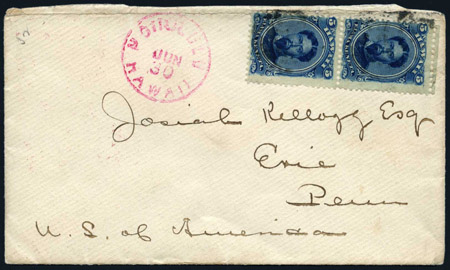 HONOLULU
JUN
30
HAWAII
5 5
5 5
Josiah Kellogg Esq
Erie
Penn
U. S. of America